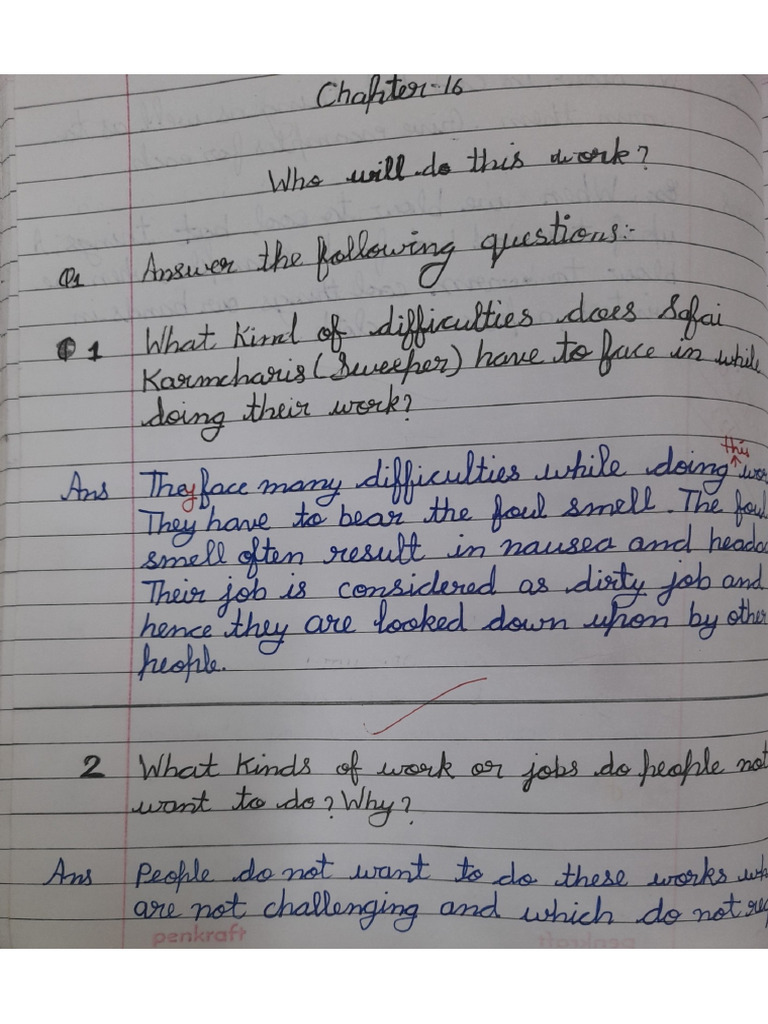 Chapter-16
Who will do this work?
Q1 Answer the following questions:-
Q1 What Kind of difficulties does Safai
Karmcharis (Sweeper) have to face in while
doing their work?
this
Ans They face many difficulties while doing
They have to bear the foul smell. The
smell often result in nausea and
Their job is considered as dirty job and
hence they are looked down upon by other
people.
2 What Kinds of work or jobs do people not
want to do? Why?
Ans People do not want to do these works
are not challenging and which do not
penkraft penkraft